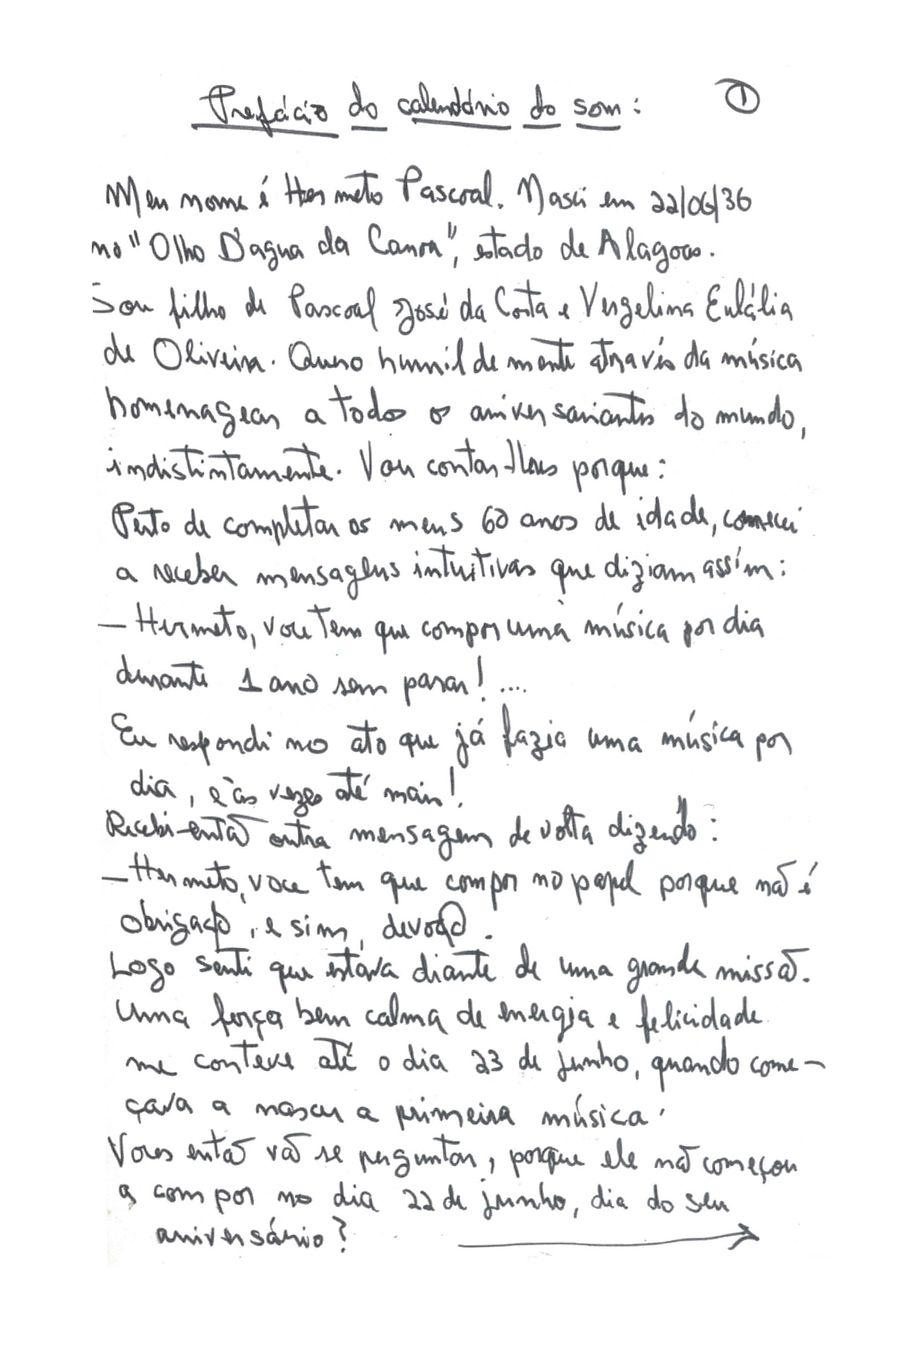 Prefácio do calendário do som: 1
Meu nome é Hermeto Pascoal. Nasci em 22/06/36
no "Olho D'agua da Canoa", estado de Alagoas.
Sou filho de Pascoal José da Costa e Vergelina Eulália
de Oliveira. Quero humildemente através da música
homenagear a todos os aniversariantes do mundo,
indistintamente. Vou contar-lhes porque:
Perto de completar os meus 60 anos de idade, comecei
a receber mensagens intuitivas que diziam assim:
— Hermeto, voce tem que compor uma música por dia
durante 1 ano sem parar!....
Eu respondi no ato que já fazia uma música por
dia, e às vezes até mais!.
Recebi então outra mensagem de volta dizendo:
— Hermeto, voce tem que compor no papel porque não é
obrigação, e sim, devoção.
Logo senti que estava diante de uma grande missão.
Uma força bem calma de energia e felicidade
me conteve até o dia 23 de junho, quando come-
çava a nascer a primeira música.
Voces então vão se perguntar, porque ele não começou
a compor no dia 22 de junho, dia do seu
aniversário?